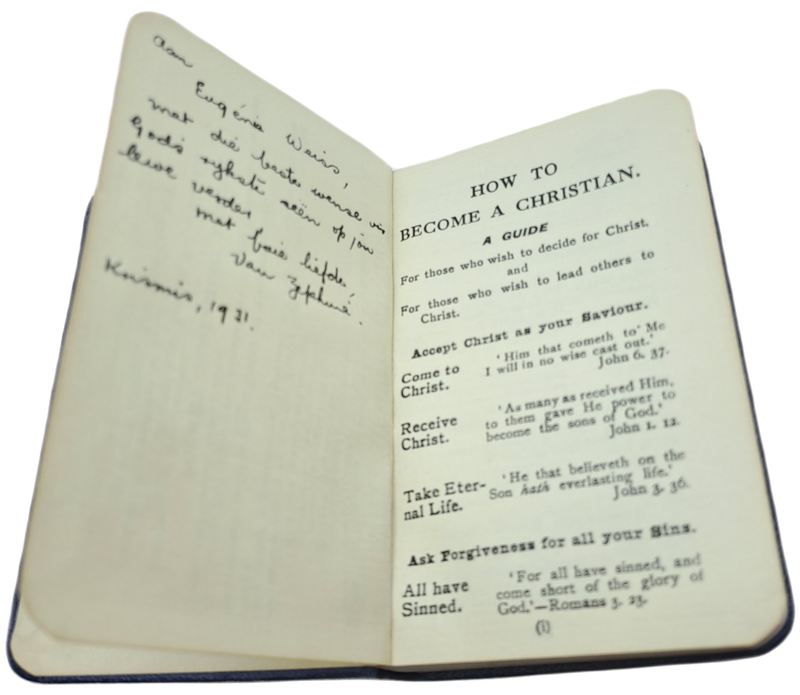 Aan
Eugénia Weiss,
met die beste wense vir
Gods rykste seën op jou
lewe verder
met baie liefde,
Van
Kersmis, 1931.
HOW TO
BECOME A CHRISTIAN.
A GUIDE
For those who wish to decide for Christ,
and
For those who wish to lead others to
Christ.
Accept Christ as your Saviour.
Come to
Christ.
'Him that cometh to' Me
I will in no wise cast out.'
John 6. 37.
Receive
Christ.
'As many as received Him,
to them gave He power to
become the sons of God.'
John 1. 12.
Take Eter-
nal Life.
'He that believeth on the
Son hath everlasting life.'
John 3. 36.
Ask Forgiveness for all your Sins.
All have
Sinned.
'For all have sinned, and
come short of the glory of
God.'—Romans 3. 23.
(1)